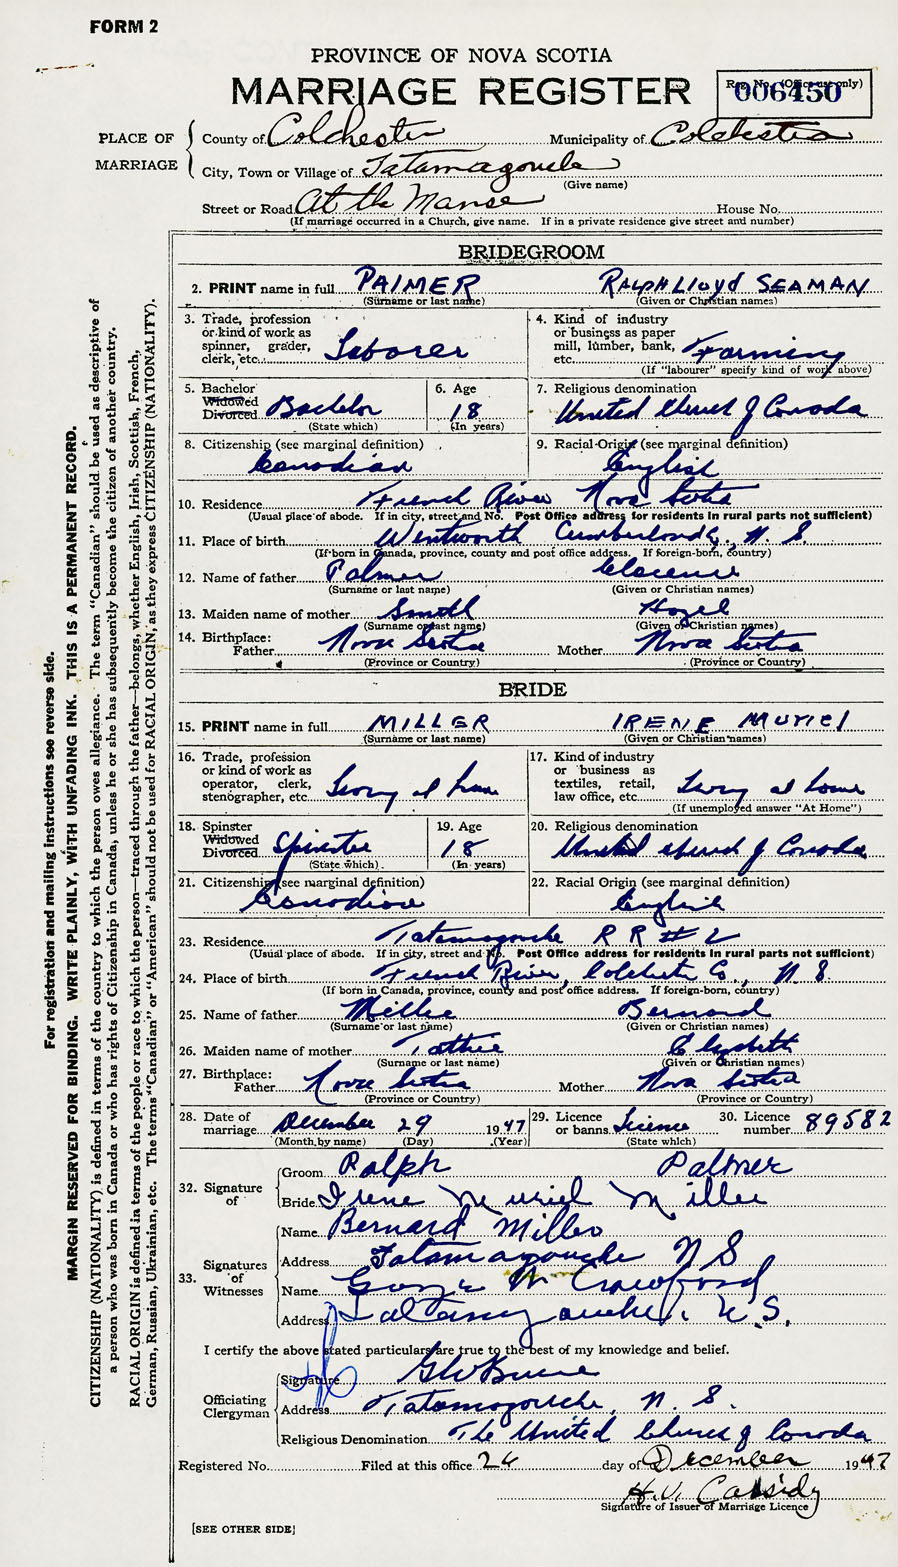 FORM 2
PROVINCE OF NOVA SCOTIA
MARRIAGE REGISTER
Reg. No. (Office use only)
006450
PLACE OF MARRIAGE
County of Colchester Municipality of Colchester
City, Town or Village of Tatamagouche
(Give name)
Street or Road At the Manse House No.
(If marriage occurred in a Church, give name. If in a private residence give street and number)
BRIDEGROOM
2. PRINT name in full PALMER RALPH LLOYD SEAMAN
(Surname or last name) (Given or Christian names)
3. Trade, profession or kind of work as spinner, grader, clerk, etc. Laborer
4. Kind of industry or business as paper mill, lumber, bank, etc. Farming
(If "labourer" specify kind of work above)
5. Bachelor Widowed Divorced Bachelor
(State which)
6. Age 18
(In years)
7. Religious denomination
United Church of Canada
8. Citizenship (see marginal definition)
Canadian
9. Racial Origin (see marginal definition)
English
10. Residence French River Nova Scotia
(Usual place of abode. If in city, street and No. Post Office address for residents in rural parts not sufficient)
11. Place of birth Wentworth Cumberland Co., N. S.
(If born in Canada, province, county and post office address. If foreign-born, country)
12. Name of father Palmer Clarence
(Surname or last name) (Given or Christian names)
13. Maiden name of mother Smith Hazel
(Surname or last name) (Given or Christian names)
14. Birthplace:
Father Nova Scotia Mother Nova Scotia
(Province or Country) (Province or Country)
BRIDE
15. PRINT name in full MILLER IRENE MURIEL
(Surname or last name) (Given or Christian names)
16. Trade, profession or kind of work as operator, clerk, stenographer, etc. Living at home
17. Kind of industry or business as textiles, retail, law office, etc. Living at home
(If unemployed answer "At Home")
18. Spinster Widowed Divorced Spinster
(State which)
19. Age 18
(In years)
20. Religious denomination
United Church of Canada
21. Citizenship (see marginal definition)
Canadian
22. Racial Origin (see marginal definition)
English
23. Residence Tatamagouche R R # 2
(Usual place of abode. If in city, street and No. Post Office address for residents in rural parts not sufficient)
24. Place of birth French River, Colchester Co., N. S.
(If born in Canada, province, county and post office address. If foreign-born, country)
25. Name of father Miller Bernard
(Surname or last name) (Given or Christian names)
26. Maiden name of mother Tattrie Elizabeth
(Surname or last name) (Given or Christian names)
27. Birthplace:
Father Nova Scotia Mother Nova Scotia
(Province or Country) (Province or Country)
28. Date of marriage December 29 1947
(Month by name) (Day) (Year)
29. Licence or banns License
(State which)
30. Licence number 89582
32. Signature of
Groom Ralph Palmer
Bride Irene Muriel Miller
33. Signatures of Witnesses
Name Bernard Miller
Address Tatamagouche N S
Name George W Crawford
Address Tatamagouche, N.S.
I certify the above stated particulars are true to the best of my knowledge and belief.
Officiating Clergyman
Signature
Address Tatamagouche, N. S.
Religious Denomination The United Church of Canada
Registered No. Filed at this office 26 day of December 1947
H. V. Cassidy
Signature of Issuer of Marriage Licence
[SEE OTHER SIDE]
For registration and mailing instructions see reverse side.
MARGIN RESERVED FOR BINDING. WRITE PLAINLY, WITH UNFADING INK. THIS IS A PERMANENT RECORD.
CITIZENSHIP (NATIONALITY) is defined in terms of the country to which the person owes allegiance. The term "Canadian" should be used as descriptive of
a person who was born in Canada or who has rights of Citizenship in Canada, unless he or she has subsequently become the citizen of another country.
RACIAL ORIGIN is defined in terms of the people or race to which the person—traced through the father—belongs, whether English, Irish, Scottish, French,
German, Russian, Ukrainian, etc. The terms "Canadian" or "American" should not be used for RACIAL ORIGIN, as they express CITIZENSHIP (NATIONALITY).